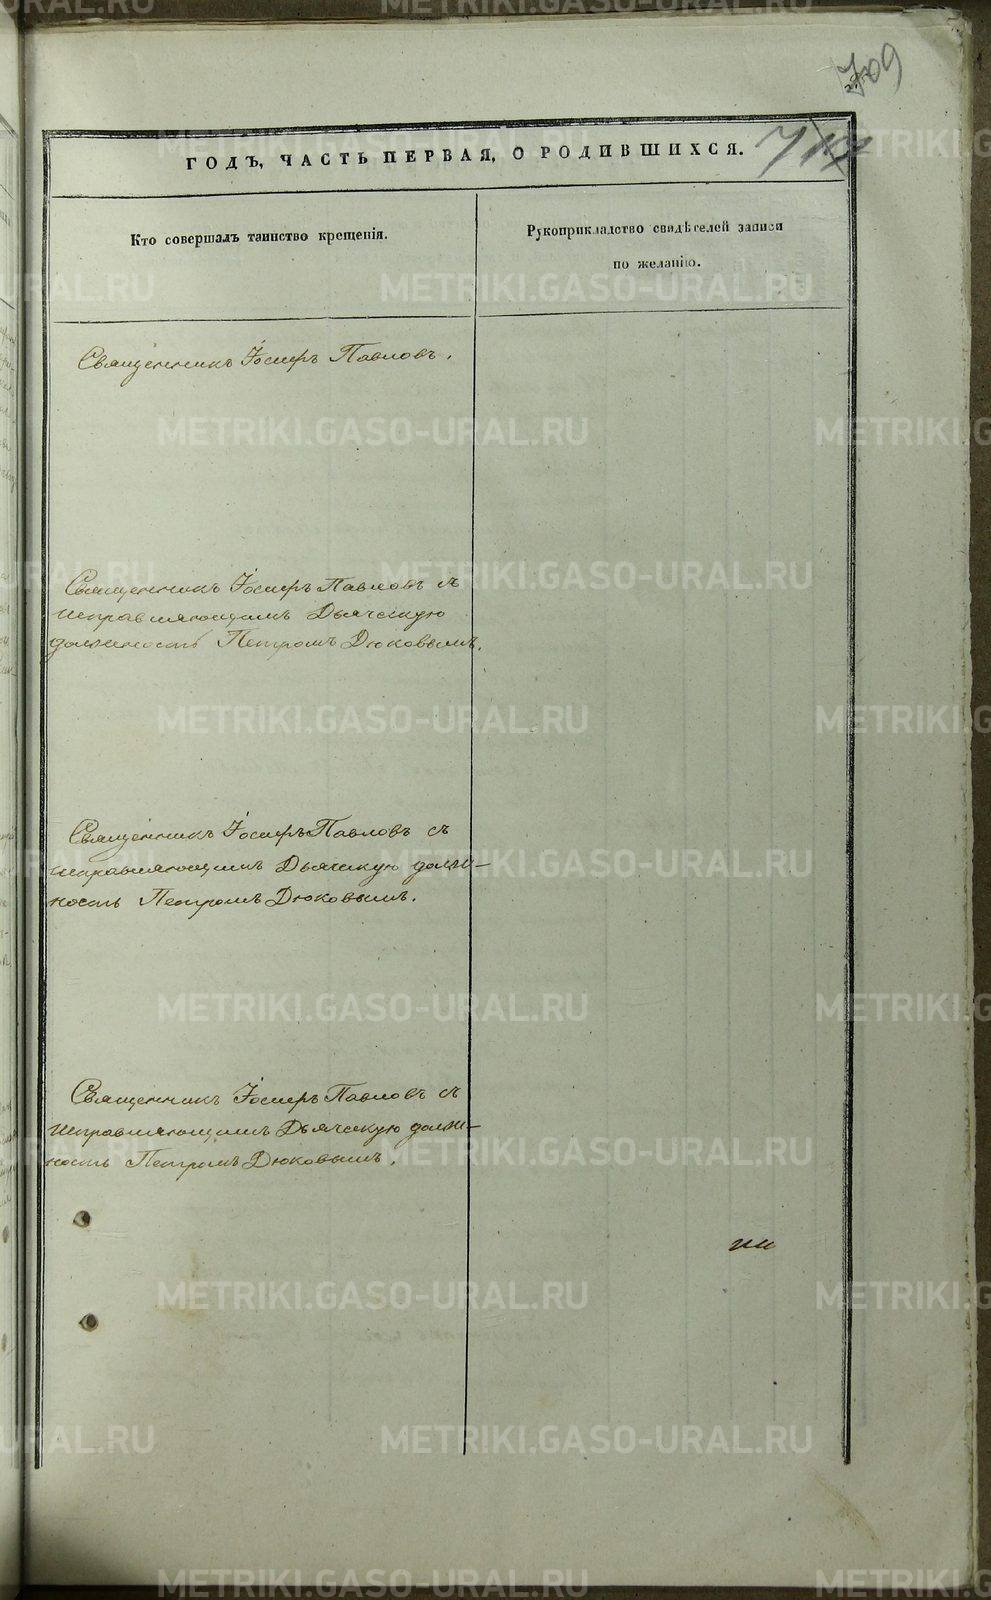 709
ГОДЪ, ЧАСТЬ ПЕРВАЯ, О РОДИВШИХСЯ.
Кто совершалъ таинство крещенія.
Рукоприкладство свидѣтелей записи
по желанію.
Священникъ Іосифъ Павловъ.
Священникъ Іосифъ Павловъ съ
исправляющимъ Дьяческую
должность Петромъ Дюковымъ.
Священникъ Іосифъ Павловъ съ
исправляющимъ Дьяческую долж-
ность Петромъ Дюковымъ.
Священникъ Іосифъ Павловъ съ
исправляющимъ Дьяческую долж-
ность Петромъ Дюковымъ.
METRIKI.GASO-URAL.RU